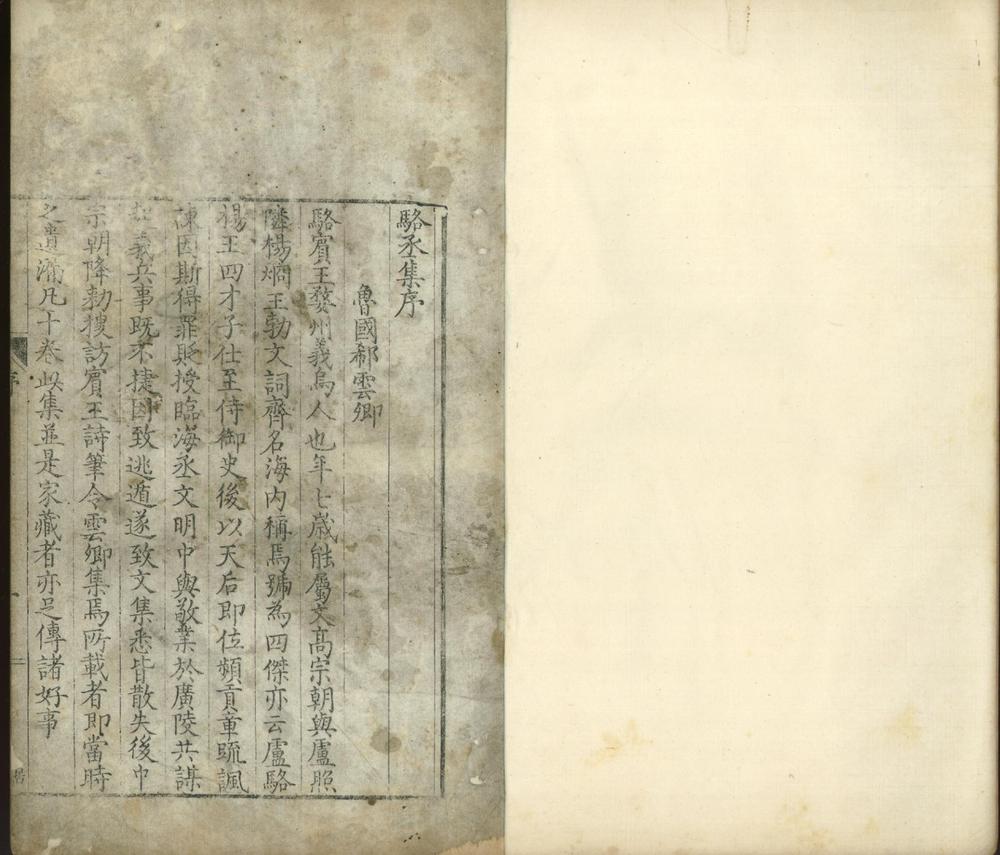 駱丞集序
魯國郗雲卿
駱賓王婺州義烏人也年七歲能屬文高宗朝與盧照
隣楊烱王勃文詞齊名海內稱焉號為四傑亦云盧駱
楊王四才子仕至侍御史後以天后即位頻貢章䟽諷
諫因斯得罪貶授臨海丞文明中與敬業於廣陵共謀
起義兵事既不捷因致逃遁遂致文集悉皆散失後中
宗朝降勑搜訪賓王詩筆令雲卿集焉所載者即當時
之遺漏凡十卷此集並是家藏者亦足傳諸好事
序
一